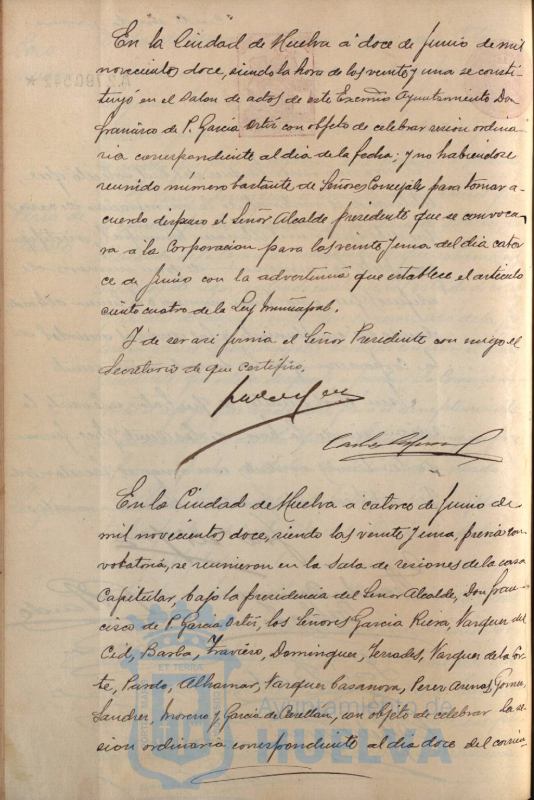 En la Ciudad de Huelva á doce de Junio de mil
novecientos doce, siendo la hora de las veinte y una se consti-
tuyó en el Salon de actos de este Excmo Ayuntamiento Don
Francisco de P. Garcia Ortiz con objeto de celebrar sesion ordina-
ria correspondiente al dia de la fecha; y no habiendose
reunido número bastante de Señores Concejales para tomar a-
cuerdo dispuso el Señor Alcalde presidente que se convoca-
ra á la Corporacion para las veinte y una del dia cator-
ce de Junio con la advertencia que establece el articulo
ciento cuatro de la Ley Municipal.
Y de ser asi firma el Señor Presidente con migo el
Secretario de que certifico.
En la Ciudad de Huelva á catorce de Junio de
mil novecientos doce, siendo las veinte y una, previa con-
vocatoria, se reunieron en la Sala de sesiones de la casa
Capitular, bajo la presidencia del Señor Alcalde, Don Fran-
cisco de P. Garcia Ortiz, los Señores Garcia Riera, Vazquez del
Cid, Barba, Traviero, Dominguez, Terrades, Vazquez de la Cor-
te, Pardo, Alhamar, Vazquez Casanova, Perez Arenas, Gomez,
Sandrez, Moreno y Garcia de Casellan, con objeto de celebrar la se-
sion ordinaria correspondiente al dia doce del corrien-
ET TERRA
Ayuntamiento de
HUELVA